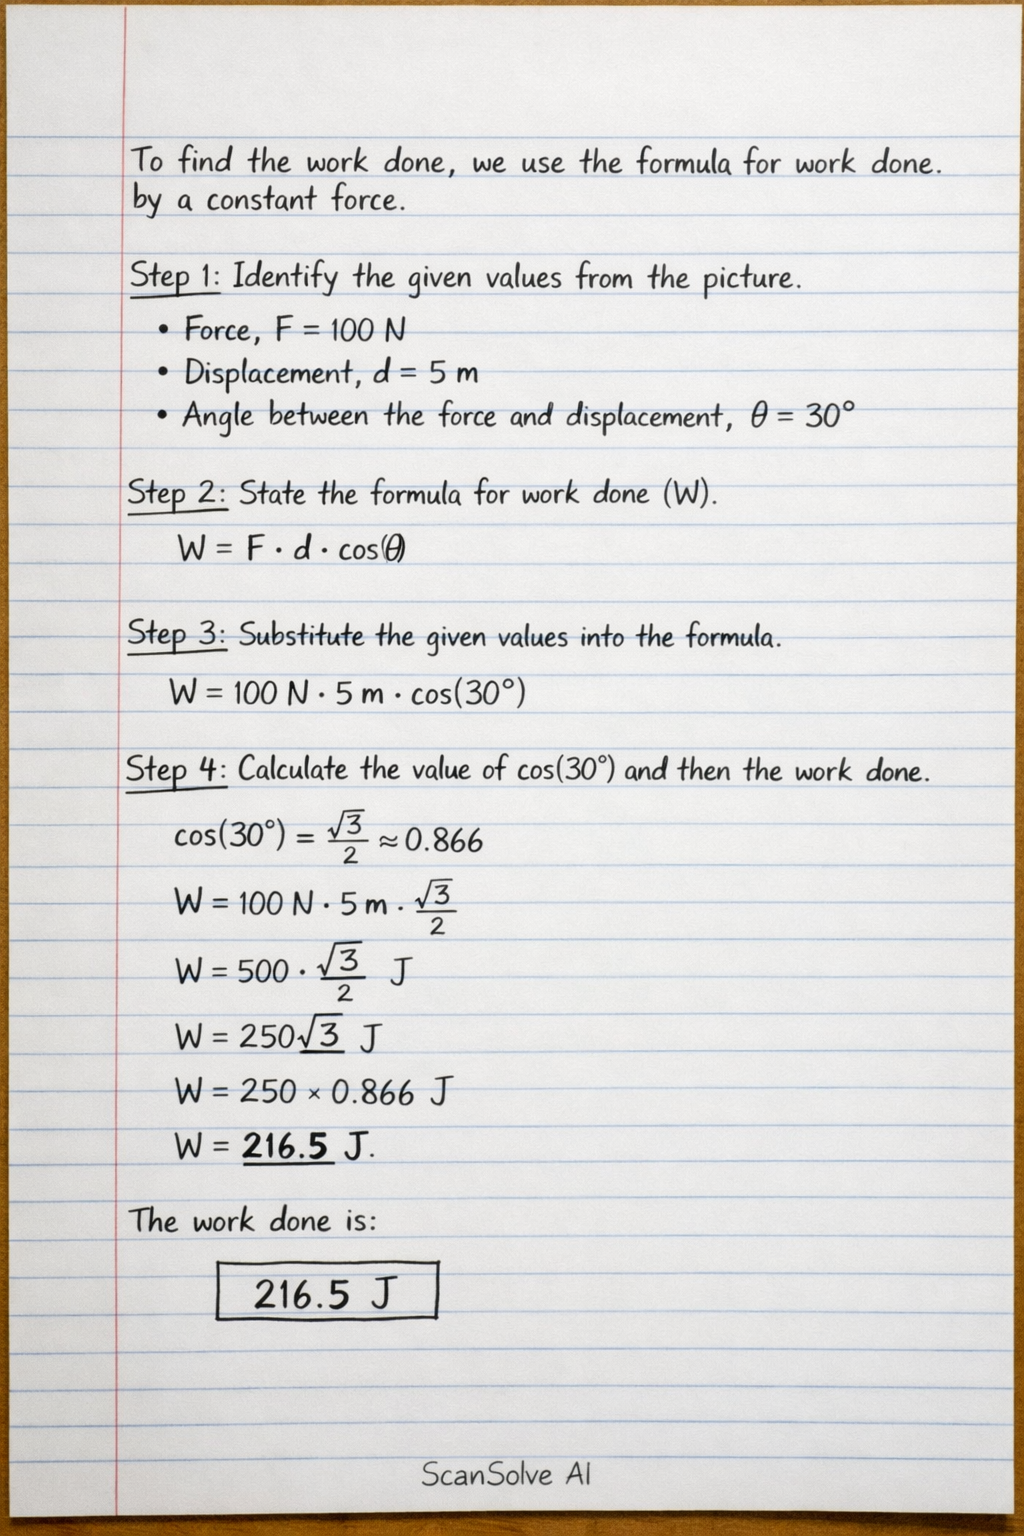 To find the work done, we use the formula for work done.
by a constant force.
Step 1: Identify the given values from the picture.
• Force, F = 100 N
• Displacement, d = 5 m
• Angle between the force and displacement, θ = 30°
Step 2: State the formula for work done (W).
W = F · d · cos(θ)
Step 3: Substitute the given values into the formula.
W = 100 N · 5 m · cos(30°)
Step 4: Calculate the value of cos(30°) and then the work done.
cos(30°) = √3/2 ≈ 0.866
W = 100 N · 5 m · √3/2
W = 500 · √3/2 J
W = 250√3 J
W = 250 × 0.866 J
W = 216.5 J.
The work done is:
216.5 J
ScanSolve AI